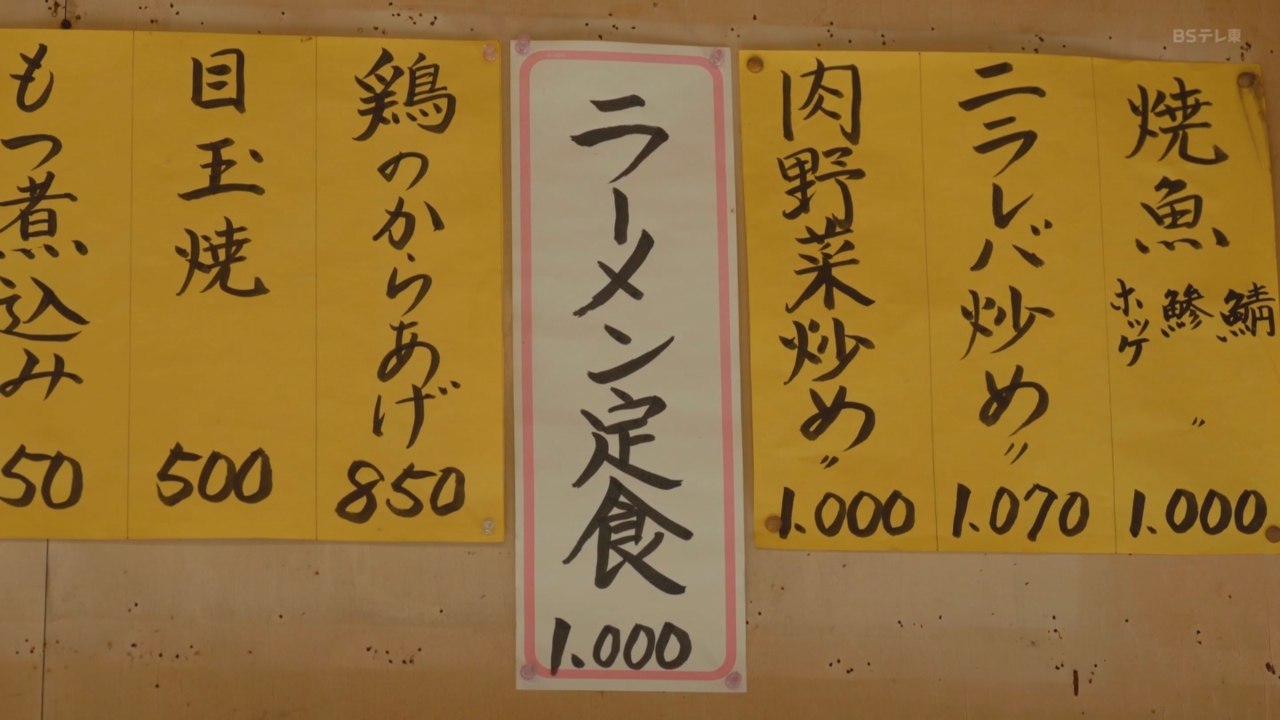 焼魚
鯖
鯵
ホッケ
〃
1.000
ニラレバ炒め〃
1.070
肉野菜炒め〃
1.000
ラーメン定食
1.000
鶏のからあげ
850
目玉焼
500
もつ煮込み
50
BSテレ東